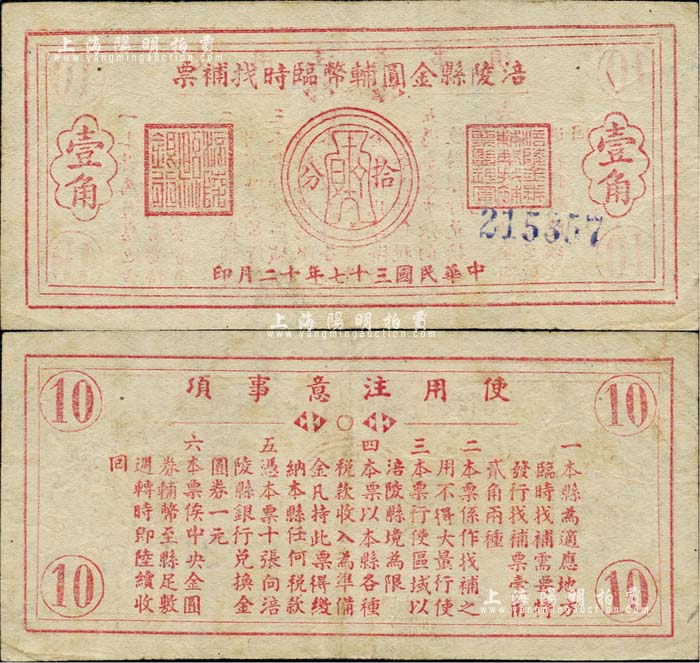 上海陽明拍賣
www.yangmingauction.com
涪陵縣金圓輔幣臨時找補票
壹角
拾
分
壹角
215357
中華民國三十七年十二月印
上海陽明拍賣
www.yangmingauction.com
10
使用注意事項
10
一本縣為適應地方
臨時找補需要特
發行找補票壹角
貳角兩種
二本票係作找補之
用不得大量行使
三本票行使區域以
涪陵縣境為限
四本票以本縣各種
税款收入為準備
金凡持此票得繳
納本縣任何税款
五憑本票十張向涪
陵縣銀行兌換金
圓券一元
六本票俟中央金圓
券輔幣至縣足數
週轉時即陸續收
回
10
10
上海陽明拍賣
www.yangmingauction.com